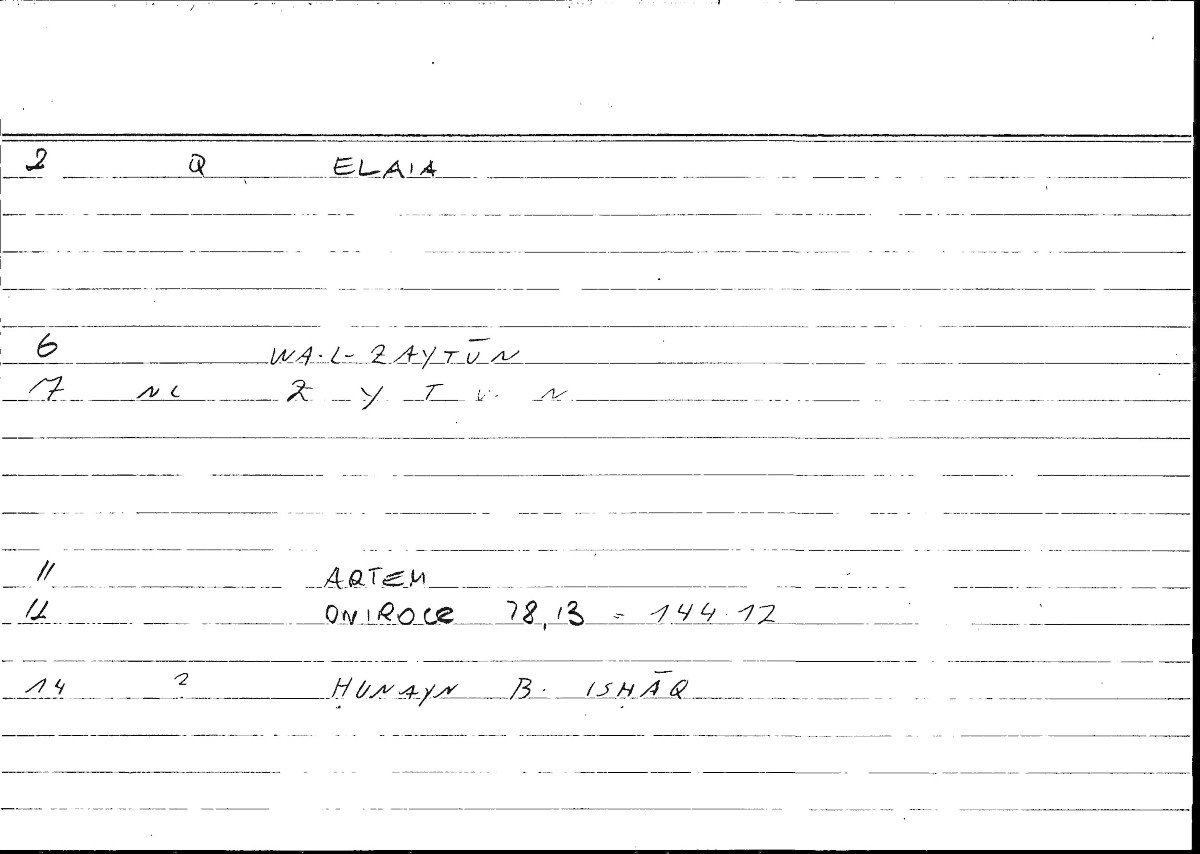 2 Q ELAIA
6 WA-L-ZAYTŪN
7 NL Z Y T U N
11 ARTEM
12 ONIROCE 78,13 = 144.12
14 2 ḤUNAYN B. ISḤĀQ